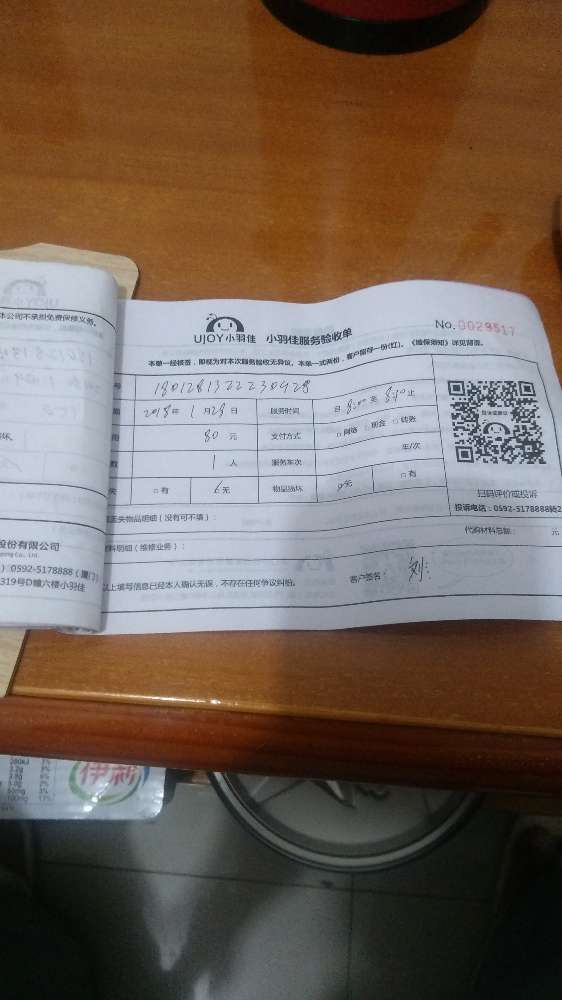 UJOY小羽佳 小羽佳服务验收单
No.0029517
本单一经核签，即视为对本次服务验收无异议。本单一式两份，客户留存一份(红)。《维保须知》详见背面。
号 18012813222230428
2018年1月28日 服务时间 日 8:00 至 8:40 止
80 元 支付方式 □网络 现金 □转账
1 人 服务车次 车/次
□有 无 物品损坏 无 □有
丢失物品明细（没有可不填）：
料明细（维修业务）： 代购材料总额： 元
以上填写信息已经本人确认无误，不存在任何争议纠纷。 客户签名： 刘
扫码评价或投诉
投诉电话：0592-5178888转2
本公司不承担免费保修义务。
股份有限公司
0592-5178888（厦门）
319号D幢六楼小羽佳
伊利